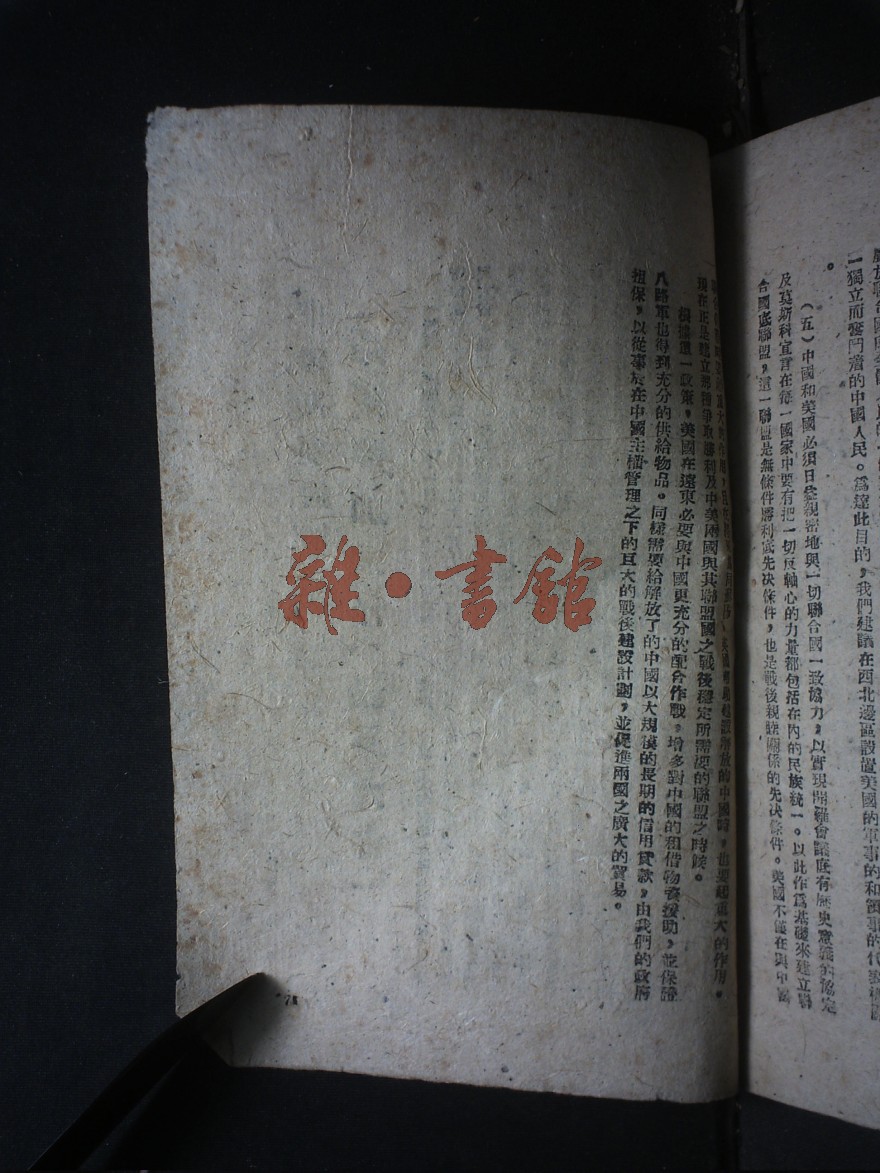 一獨立而奮鬥着的中國人民。爲達此目的,我們建議在西北邊區設置美國的軍事的和領事的代表機關
。
(五)中國和英國必須日益親密地與一切聯合國一致協力,以實現開羅會議底有歷史意義的協定
及莫斯科宣言在每一國家中要有把一切反軸心的力量都包括在內的民族統一。以此作爲基礎來建立聯
合國底聯盟,這一聯盟是無條件勝利底先决條件,也是戰後親睦關係的先决條件。美國不僅在與中國
大的作用,
解放的中國時,也要起重大的作用。
現在正是建立那種爭取勝利及中美兩國與其聯盟國之戰後穩定所需要的聯盟之時候。
根據這一政策,美國在遠東必要與中國更充分的配合作戰,增多對中國的租借物資援助,並保證
八路軍也得到充分的供給物品。同樣需要給解放了的中國以大規模的長期的信用貸款,由我們的政府
担保,以從事於在中國主權管理之下的巨大的戰後建設計劃,並促進兩國之廣大的貿易。
雜·書館